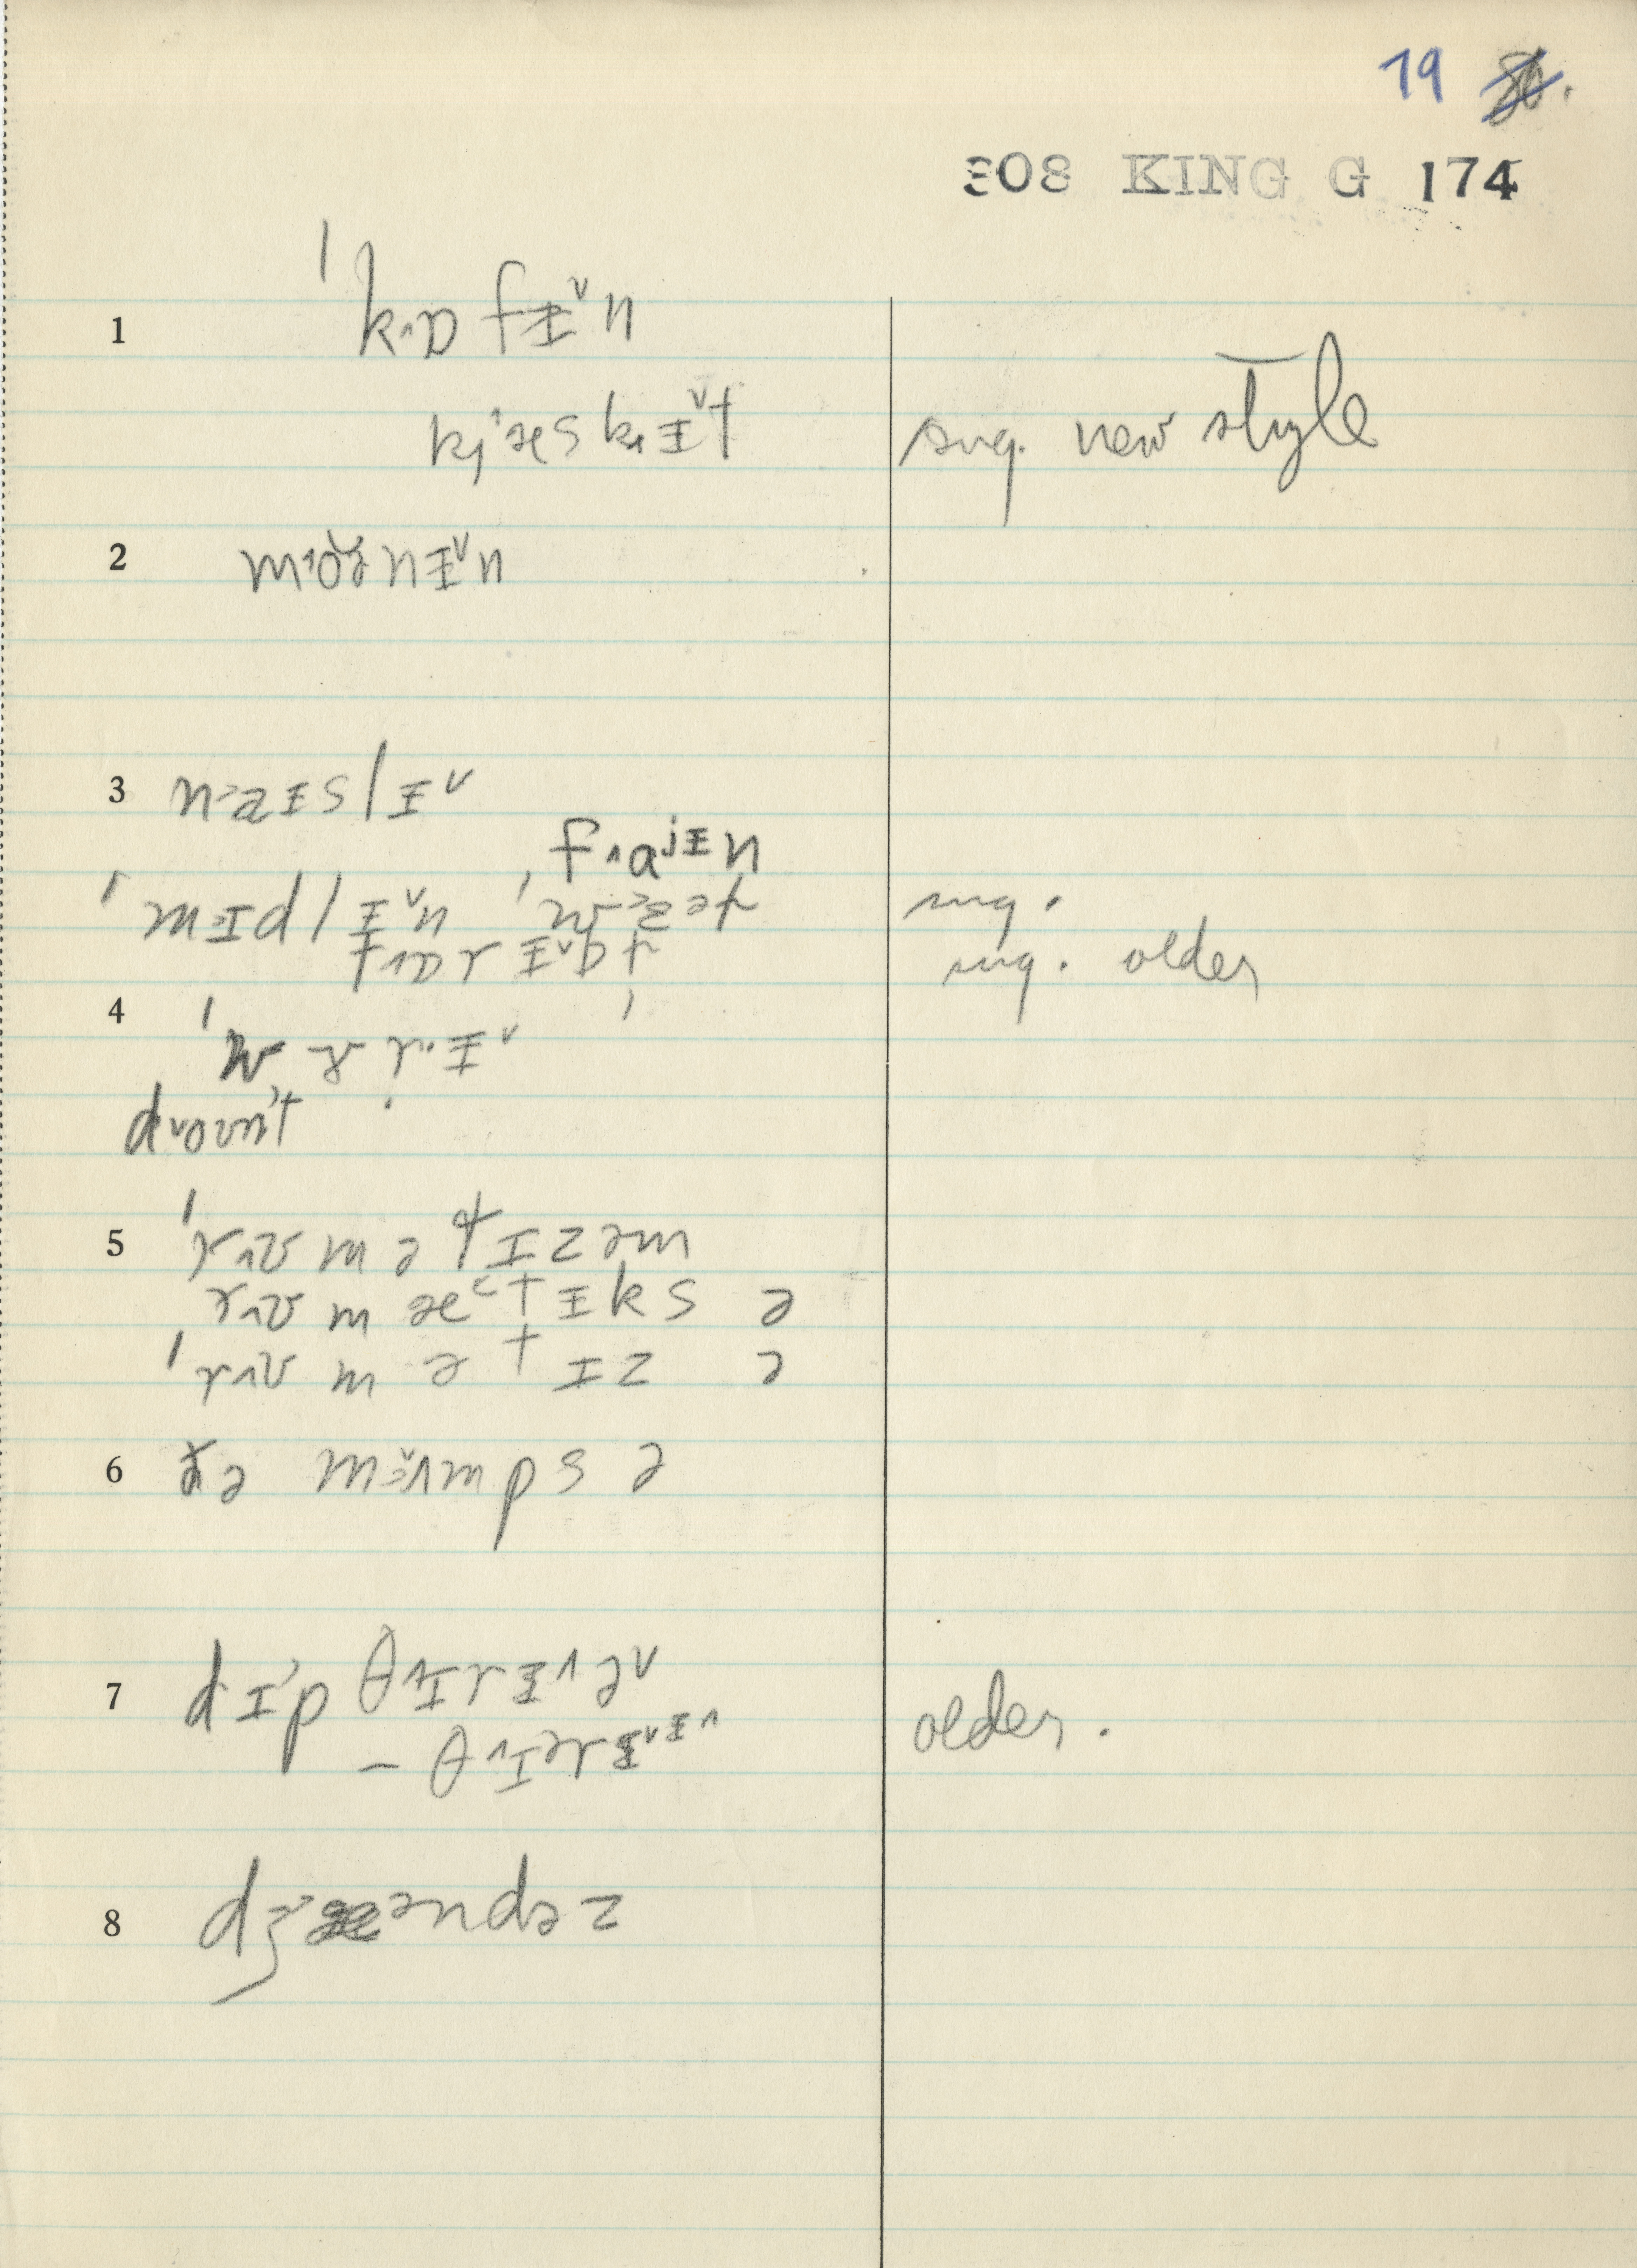 19 80.
308 KING G 174
1 ˈk˄ɒfɪ̵˅n
kj˄æskɪ̵˅t sug. new style
2 m˄ɔ̆ə̆nɪ̵˅n
3 n˃aɪ̵slɪ̵˅
f˄aʲɪ̵n
ˈmɪ̵dlɪ̵˅n, ˈw˃ɛət sug.
f˄ɒrɪ̵˅bt sug. older
4 ˈwɤrɪ̵˅
d˅oʊn't
5 ˈr˄ʊmətɪzəm
r˄ʊmætɪ̵ksə
ˈr˄ʊmətɪzə
6 ðə mʌmpsə
7 dɪ'pθ˄ɪrɪ̵˄ə˅
– θ˄ɪərɪ̵˅ɪ̵˄ older.
8 dʒ˃æəndəz